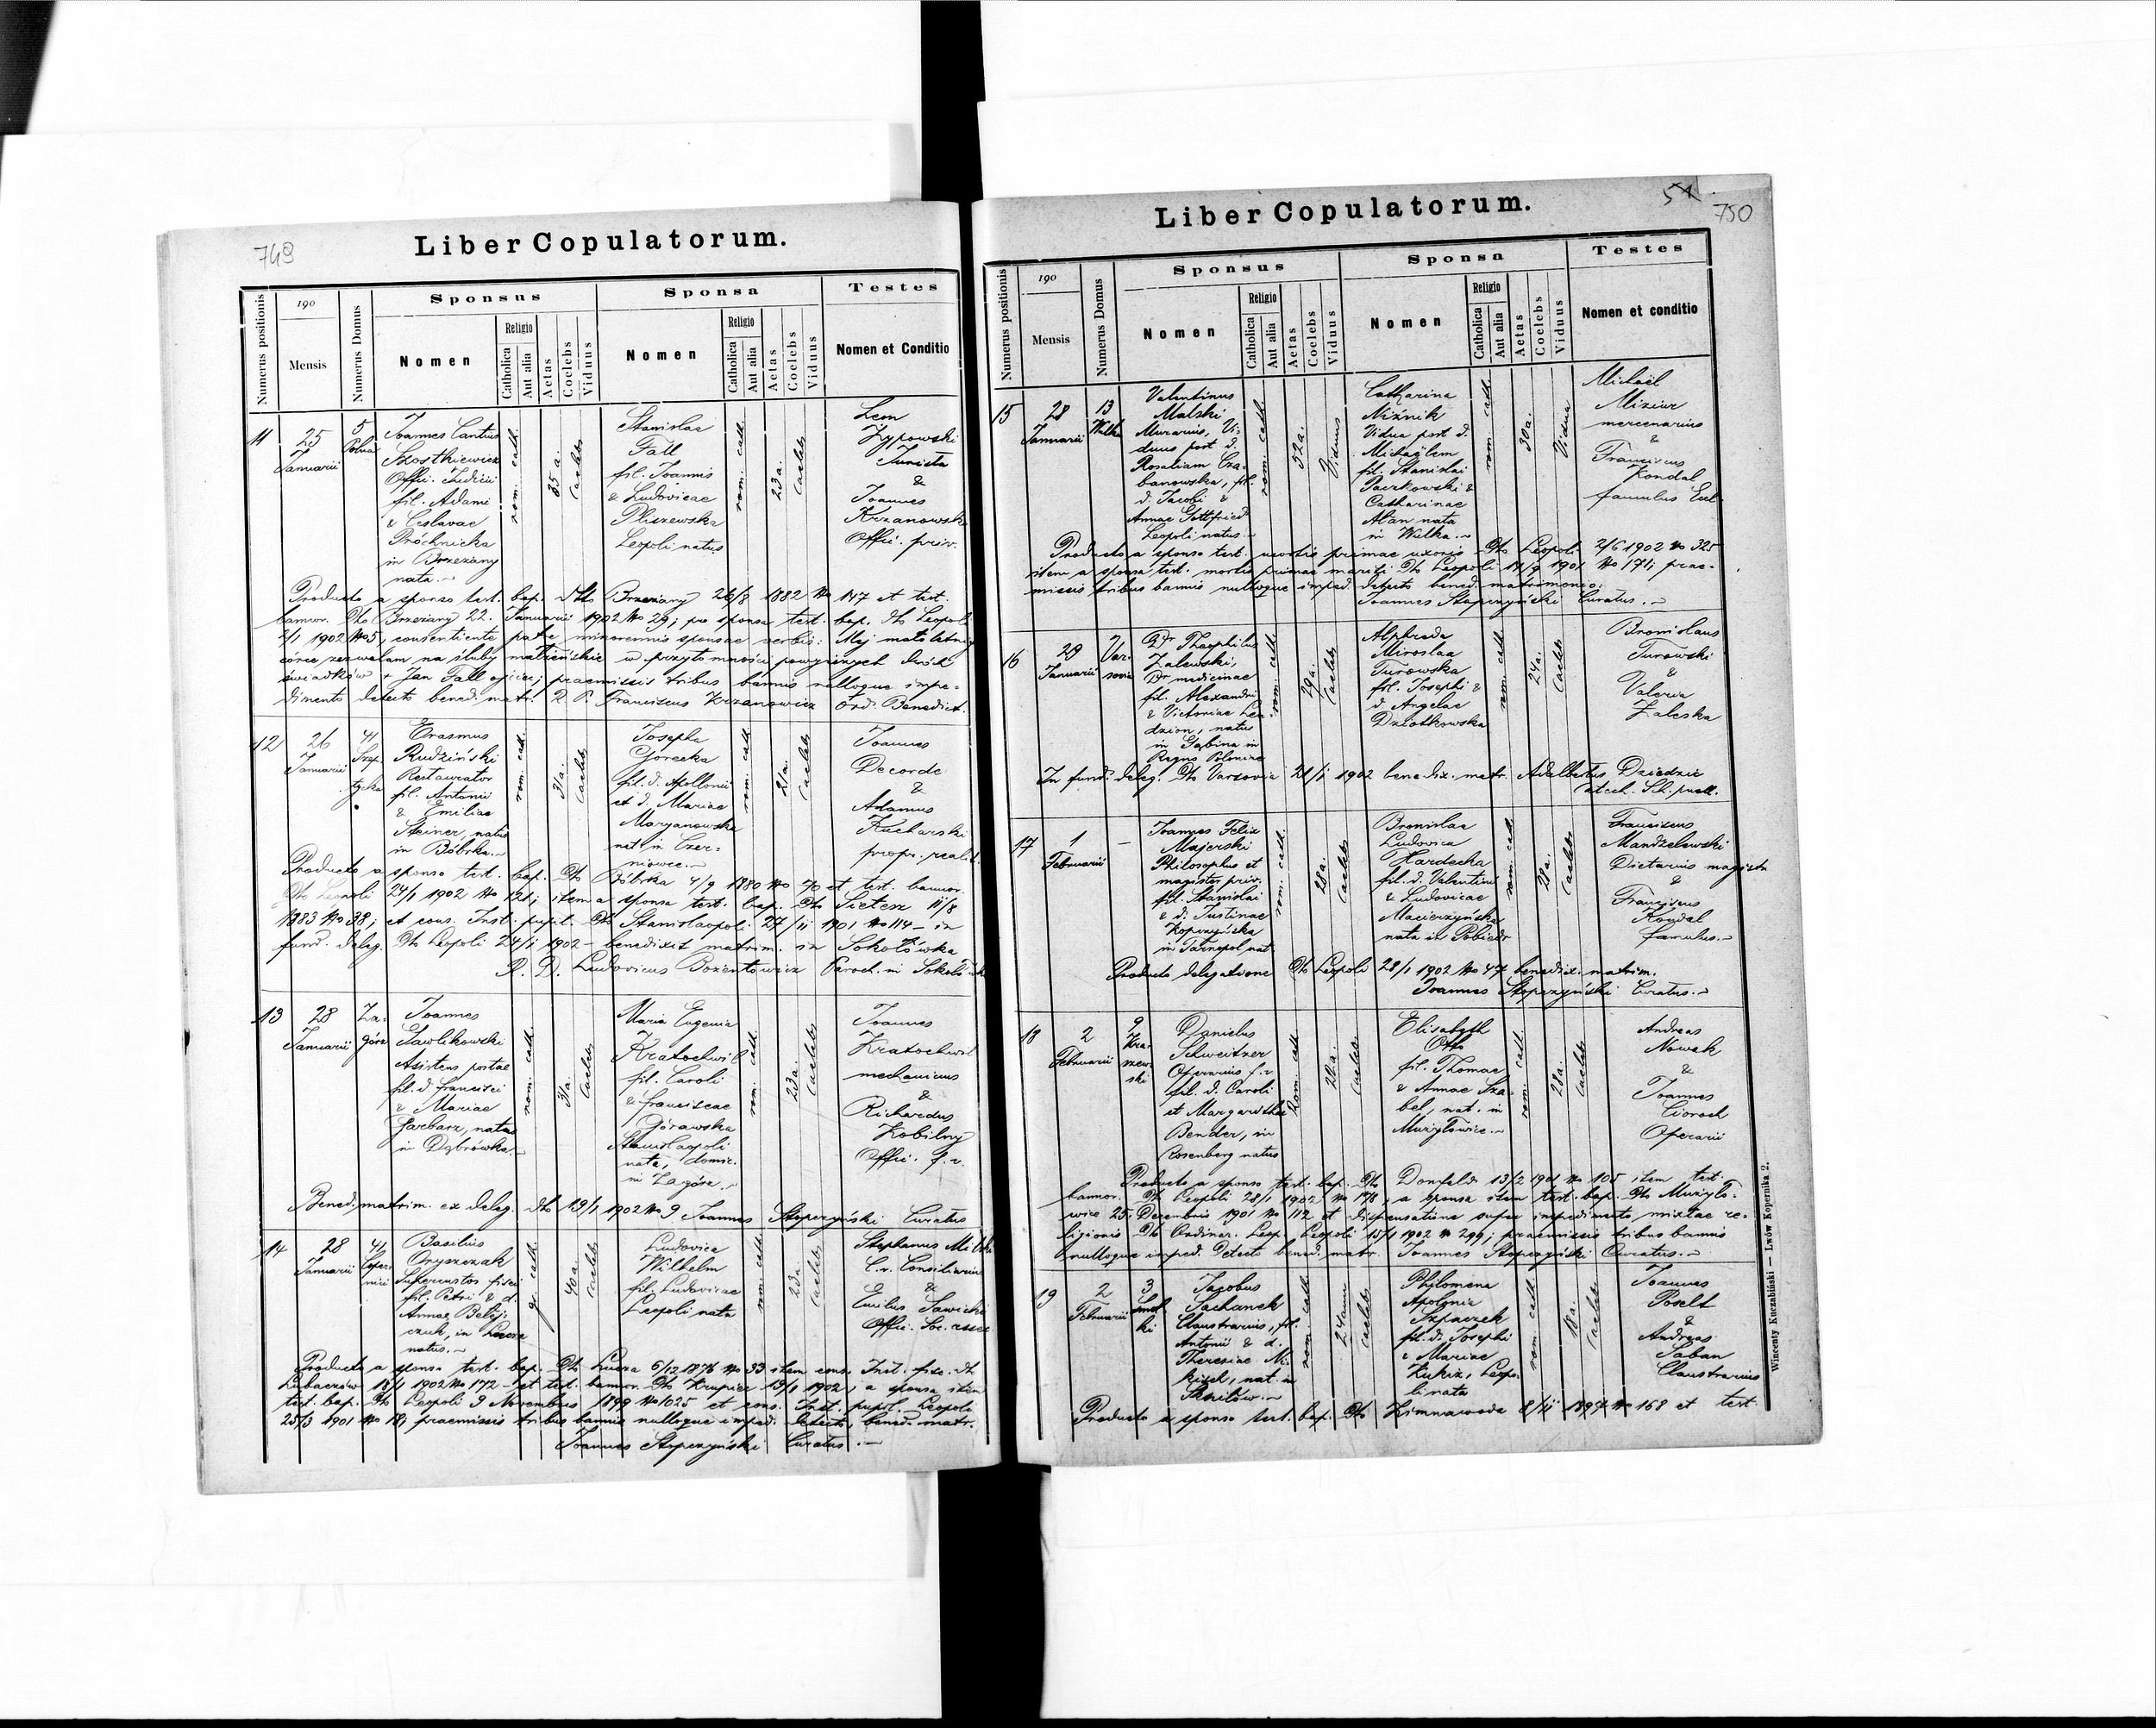 749
Liber Copulatorum.
Numerus positionis
190
Mensis
Numerus Domus
Sponsus
Nomen
Religio
Catholica
Aut alia
Aetas
Coelebs
Viduus
Sponsa
Nomen
Religio
Catholica
Aut alia
Aetas
Coelebs
Viduus
Testes
Nomen et Conditio
11
25
Januarii
5
Joannes Cantius
Szostkiewicz
Offic. Judicii
fil. Adami
& Ceslavae
Próchnicka
in Brzezany
nata.
rom. cath.
35 a.
Caelebs
Stanislaa
Fall
fil. Joannis
& Ludovicae
Pliszewska
Leopoli natus
rom. cath.
23 a.
Caelebs
Leon
Zypowski
Junista
&
Joannes
Krzanowski
Offic. priv.
Producto a sponso test. bap. dto Brzezany 26/8 1882 No 147 et test.
bannor. dto Brzezany 22. Januarii 1902 No 29; pro sponsa test. bap. dto Leopoli
1902 No 5, consentiente patre minorennis sponsae verbis: Mej małoletniej
córce zezwalam na śluby małżeńskie w przytomności powyższych dwóch
świadków + Jan Fall ojciec; praemissis tribus bannis nulloque impe-
dimento detecto bened. matr. R. P. Franciscus Krzanowicz Ord. Benedict.
12
26
Januarii
41
Erasmus
Rudziński
Restaurator
fil. Antonii
& Emiliae
Steiner, natus
in Bóbrka.
rom. cath.
31 a.
Caelebs
Josepha
Górecka
fil. d. Apollonii
et d. Mariae
Maryanowska
nat. in Czer-
niowce.
rom. cath.
21 a.
Caelebs
Joannes
Decorde
&
Adamus
Kucharski
propr. realit.
Producto a sponso test. bap. dto Bóbrka 4/9 1880 No 70 et test. bannor.
dto Leopoli 24/1 1902 No 121; item a sponsa test. bap. dto Sietesz 11/8
1883 No 38; et cons. Inst. pupil. dto Stanislaopoli 27/11 1901 No 114 - in
fund. deleg. dto Leopoli 24/1 1902 - benedixit matrim. in Sokołówka
R. D. Ludovicus Bozentowicz Paroch. in Sokołówka
13
28
Januarii
Za-
górz
Joannes
Pawlikowski
Asistens postae
fil. d. Francisci
& Mariae
Garbarz, natus
in Dąbrówka.
rom. cath.
31 a.
Caelebs
Maria Eugenia
Kratochwil
fil. Caroli
& Franciscae
Górawska
Stanislaopoli
nata, domic.
in Zagórz.
rom. cath.
23 a.
Caelebs
Joannes
Kratochwil
mechanicus
&
Richardus
Kobilny
Offic. f. v.
Bened. matrim. ex deleg. dto 19/1 1902 No 9 Joannes Stopczyński Curatus
14
28
Januarii
41
Coper-
nici
Basilius
Oryszczak
Supercustos fisci
fil. Petri & d.
Annae Belej-
czuk, in Lucza
natus.
40 a.
Caelebs
Ludovica
Wilhelm
fil. Ludovicae
Leopoli nata
rom. cath.
23 a.
Caelebs
Stephanus
C. r. Consiliarius
&
Emilus Sawicki
Offic. Soc.
Producto a sponso test. bap. dto Lucza 6/12 1876 No 33 item cons. Inst. fisc. dto
Lubaczów 18/1 1902 No 172 - et test. bannor. dto Krupiec 19/1 1902; a sponsa item
test. bap. dto Leopoli 9 Novembris 1899 No 1025 et cons. Inst. pupil. Leopoli
25/3 1901 No 18; praemissis tribus bannis nulloque imped. detecto, bened. matr.
Joannes Stopczyński Curatus.
51
750
Liber Copulatorum.
Numerus positionis
190
Mensis
Numerus Domus
Sponsus
Nomen
Religio
Catholica
Aut alia
Aetas
Coelebs
Viduus
Sponsa
Nomen
Religio
Catholica
Aut alia
Aetas
Coelebs
Viduus
Testes
Nomen et conditio
15
28
Januarii
13
Wulka
Valentinus
Malski
Murarius, Vi-
duus post d.
Rosaliam Cza-
banowska, fil.
d. Jacobi &
Annae Gottfried
Leopoli natus.
rom. cath.
52 a.
Viduus
Catharina
Niźnik
Vidua post d.
Michaëlem
fil. Stanislai
Paczkowski &
Catharinae
nata
in Wulka.
rom. cath.
30 a.
Vidua
Michaël
Miziur
mercenarius
&
Franciscus
Kondal
famulus Eccl.
Producto a sponso test. mortis primae uxoris dto Leopoli 2/6 1902 No 325
item a sponsa test. mortis primae mariti dto Leopoli 14/9 1901 No 171; prae-
missis tribus bannis nulloque imped. detecto bened. matrimonio:
Joannes Stopczyński Curatus.
16
29
Januarii
Var-
sovia
Dr Theophilus
Zalewski,
Dr medicinae
fil. Alexandri
& Victoriae Lea-
dzion, natus
in Gąbina in
Regno Poloniae
rom. cath.
29 a.
Caelebs
Alphreda
Miroslaa
Turowska
fil. Josephi &
d. Angelae
Dziatkowska
rom. cath.
24 a.
Caelebs
Bronislaus
Turowski
&
Valeria
Zaleska
In fund. deleg. dto Varsovia 21/1 1902 benedix. matr. Adalbertus Dziedzic
Catech. Sch. puell.
17
1
Februarii
-
Joannes Felix
Majerski
Philosophus et
magister priv.
fil. Stanislai
& d. Justinae
Kopczyńska
in Tarnopol nat.
rom. cath.
28 a.
Caelebs
Bronislaa
Ludovica
Hardecka
fil. d. Valentini
& Ludovicae
Macierzyńska
nata in Pobiedr
rom. cath.
28 a.
Caelebs
Franciscus
Mandzelowski
Dietarius magistr.
&
Franciscus
Kondal
famulus.
Producto delegatione dto Leopoli 28/1 1902 No 47 benedix. matrim.
Joannes Stopczyński Curatus.
18
2
Februarii
9
Kra-
szew-
ski
Danielus
Schweitzer
Operarius f. v.
fil. d. Caroli
et Margarethae
Bender, in
Rosenberg natus
Rom. cath.
22 a.
Caelebs
Elisabeth
Otto
fil. Thomae
& Annae Sza-
bel, nat. in
Mużyłowice.
rom. cath.
28 a.
Caelebs
Andreas
Nowak
&
Joannes
Cioroch
Operarii
Producto a sponso test. bap. dto Dornfeld 13/2 1901 No 105 item test.
bannor. dto Leopoli 28/1 1902 No 178, a sponsa item test. bap. dto Mużyło-
wice 25. Decembris 1901 No 112 et dispensatione super impedimento mixtae re-
ligionis dto Ordinar. Leop. Leopoli 15/1 1902 No 299; praemissis tribus bannis
nulloque imped. detecto bened. matr. Joannes Stopczyński Curatus.
19
2
Februarii
3
Jacobus
Sachanek
Claustrarius, fil.
Antonii & d.
Theresiae Mi-
kisch, nat. in
Skniłów.
rom. cath.
24 ann.
Caelebs
Philomena
Apolonia
Szpaczek
fil. d. Josephi
& Mariae
Kukiz, Leopo-
li nata
rom. cath.
18 a.
Caelebs
Joannes
Poselt
&
Andreas
Saban
Claustrarius
Producto a sponso test. bap. dto Zimnawoda 8/11 1897 No 168 et test.
Wincenty Kuczabiński — Lwów Kopernika 2.